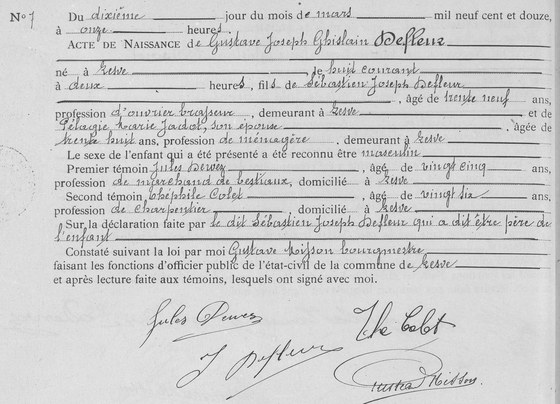 No 7 Du dixième jour du mois de mars mil neuf cent et douze,
à onze heures.
ACTE DE NAISSANCE de Gustave Joseph Ghislain Defleur
né à Gesve, le huit courant
à deux heures, fils de Sébastien Joseph Defleur
, âgé de trente neuf ans,
profession d'ouvrier brasseur, demeurant à Gesve et de
Pélagie Marie Jadot, son épouse, âgée de
trente huit ans, profession de ménagère, demeurant à Gesve
Le sexe de l'enfant qui a été présenté a été reconnu être masculin
Premier témoin Jules Dewez, âgé de vingt cinq ans,
profession de marchand de bestiaux, domicilié à Gesve
Second témoin Théophile Colot, âgé de vingt six ans,
profession de charpentier, domicilié à Gesve
Sur la déclaration faite par le dit Sébastien Joseph Defleur qui a dit être père de
l'enfant
Constaté suivant la loi par moi Gustave Misson bourgmestre
faisant les fonctions d'officier public de l'état-civil de la commune de Gesve
et après lecture faite aux témoins, lesquels ont signé avec moi.
Jules Dewez The Colot
J Defleur
Gustave Misson